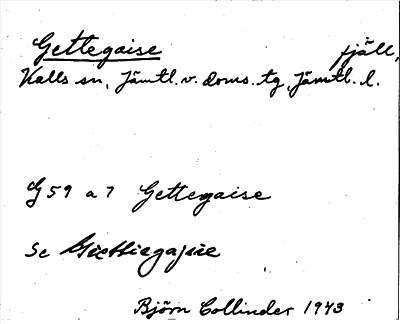 Gettegaise fjäll,
Kalls sn, Jämtl. v. doms. tg, Jämtl. l.
G 59 a 7 Gettegaise
Se Giebtiegajsie
Björn Collinder 1943